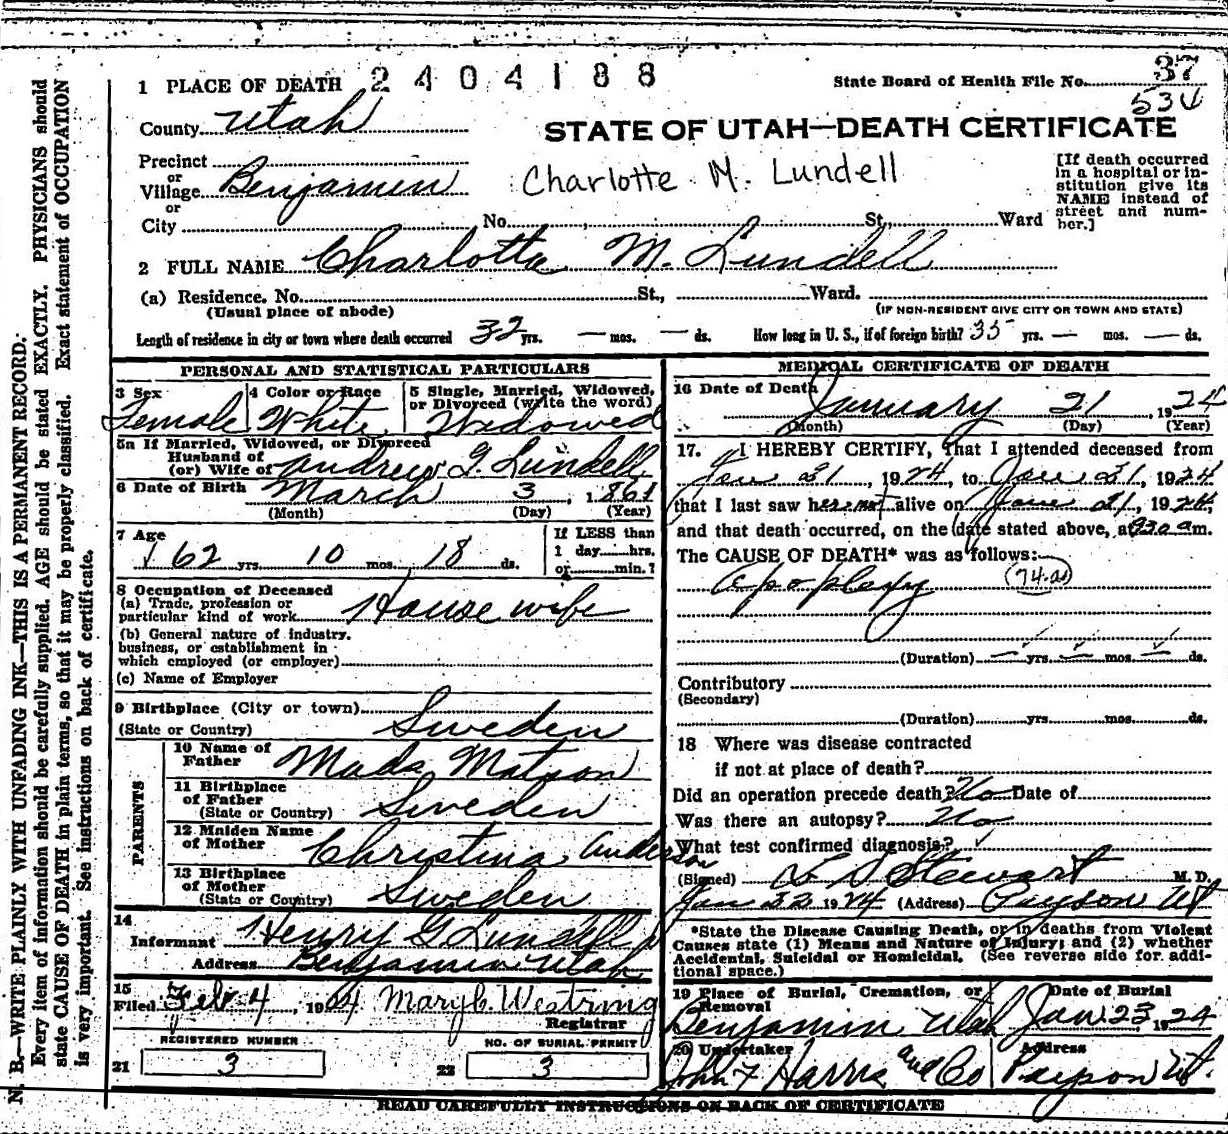 N. B.—WRITE PLAINLY WITH UNFADING INK—THIS IS A PERMANENT RECORD.
Every item of information should be carefully supplied. AGE should be stated EXACTLY. PHYSICIANS should
state CAUSE OF DEATH in plain terms, so that it may be properly classified. Exact statement of OCCUPATION
is very important. See instructions on back of certificate.
1 PLACE OF DEATH 2404188
State Board of Health File No. 37
534
County Utah
STATE OF UTAH—DEATH CERTIFICATE
Precinct
or
Village Benjamin
or
City
Charlotte M. Lundell
[If death occurred
in a hospital or in-
stitution give its
NAME instead of
street and num-
ber.]
No. St. Ward
2 FULL NAME Charlotta M. Lundell
(a) Residence. No. St., Ward.
(Usual place of abode)
(IF NON-RESIDENT GIVE CITY OR TOWN AND STATE)
Length of residence in city or town where death occurred 32 yrs. — mos. — ds. How long in U. S., if of foreign birth? 35 yrs. — mos. — ds.
PERSONAL AND STATISTICAL PARTICULARS
3 Sex
Female
4 Color or Race
White
5 Single, Married, Widowed,
or Divorced (write the word)
Widowed
5a If Married, Widowed, or Divorced
Husband of
(or) Wife of Andrew G. Lundell
6 Date of Birth March 3, 1861
(Month) (Day) (Year)
7 Age
62 yrs. 10 mos. 18 ds.
If LESS than
1 day hrs.
or min.?
8 Occupation of Deceased
(a) Trade, profession or
particular kind of work House wife
(b) General nature of industry.
business, or establishment in
which employed (or employer)
(c) Name of Employer
9 Birthplace (City or town)
(State or Country) Sweden
PARENTS
10 Name of
Father Mads Matson
11 Birthplace
of Father
(State or Country) Sweden
12 Maiden Name
of Mother Christina Anderson
13 Birthplace
of Mother
(State or Country) Sweden
14
Informant Henry G Lundell
Address Benjamin Utah
15
Filed Feb 4, 1924 Mary C. Westring
Registrar
REGISTERED NUMBER
21 3
NO. OF BURIAL PERMIT
22 3
MEDICAL CERTIFICATE OF DEATH
16 Date of Death
January 21, 1924
(Month) (Day) (Year)
17. I HEREBY CERTIFY, that I attended deceased from
Jan 21, 1924, to Jan 21, 1924
that I last saw her not alive on Jan 21, 1924,
and that death occurred, on the date stated above, at 930 am.
The CAUSE OF DEATH* was as follows:
Apoplexy 74-a
(Duration) — yrs. — mos. — ds.
Contributory
(Secondary)
(Duration) yrs. mos. ds.
18 Where was disease contracted
if not at place of death?
Did an operation precede death? No Date of
Was there an autopsy? No
What test confirmed diagnosis?
(Signed) Stewart M. D.
Jan 22 1924 (Address) Payson Ut
*State the Disease Causing Death, or in deaths from Violent
Causes state (1) Means and Nature of Injury; and (2) whether
Accidental, Suicidal or Homicidal. (See reverse side for addi-
tional space.)
19 Place of Burial, Cremation, or
Removal
Benjamin Utah
Date of Burial
Jan 23, 1924
20 Undertaker
John F Harris and Co
Address
Payson Ut.
READ CAREFULLY INSTRUCTIONS ON BACK OF CERTIFICATE